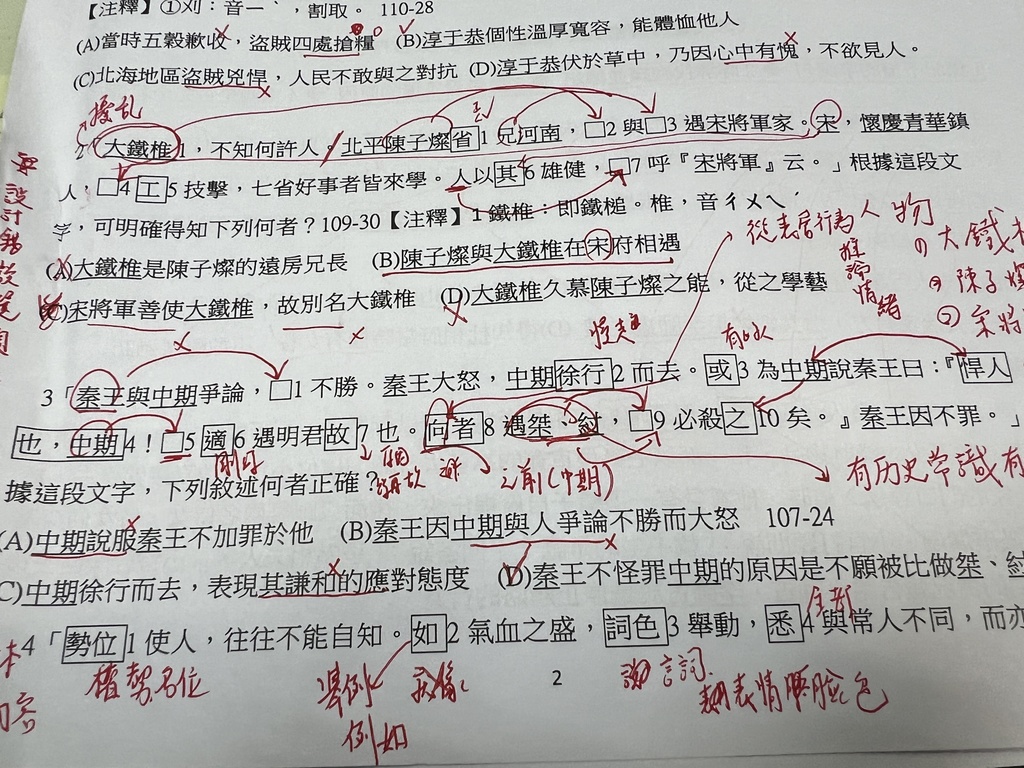 【注釋】①刈：音ㄧˋ，割取。 110-28
(A)當時五穀歉收，盜賊四處搶糧 (B)淳于恭個性溫厚寬容，能體恤他人
(C)北海地區盜賊兇悍，人民不敢與之對抗 (D)淳于恭伏於草中，乃因心中有愧，不欲見人。
擾亂
2「大鐵椎1，不知何許人。北平陳子燦省1兄河南，□2與□3遇宋將軍家。宋，懷慶青華鎮
人，□4工5技擊，七省好事者皆來學。人以其6雄健，□7呼『宋將軍』云。」根據這段文
字，可明確得知下列何者？109-30【注釋】1鐵椎：即鐵槌。椎，音ㄔㄨㄟˊ
從表居行為人物
推論情緒
(A)大鐵椎是陳子燦的遠房兄長 (B)陳子燦與大鐵椎在宋府相遇
(C)宋將軍善使大鐵椎，故別名大鐵椎 (D)大鐵椎久慕陳子燦之能，從之學藝
大鐵
陳子燦
宋將
慢走
有的人
3「秦王與中期爭論，□1不勝。秦王大怒，中期徐行2而去。或3為中期說秦王曰：『悍人
也，中期4！□5適6遇明君故7也。向者8遇桀、紂，□9必殺之10矣。』秦王因不罪。」
剛好
之前(中期)
有历史常識
據這段文字，下列敘述何者正確？
(A)中期說服秦王不加罪於他 (B)秦王因中期與人爭論不勝而大怒 107-24
C)中期徐行而去，表現其謙和的應對態度 (D)秦王不怪罪中期的原因是不願被比做桀、紂
全部
4「勢位1使人，往往不能自知。如2氣血之盛，詞色3舉動，悉4與常人不同，而亦
權勢名位
舉例
例如
就像
言詞
表情 臉色
2